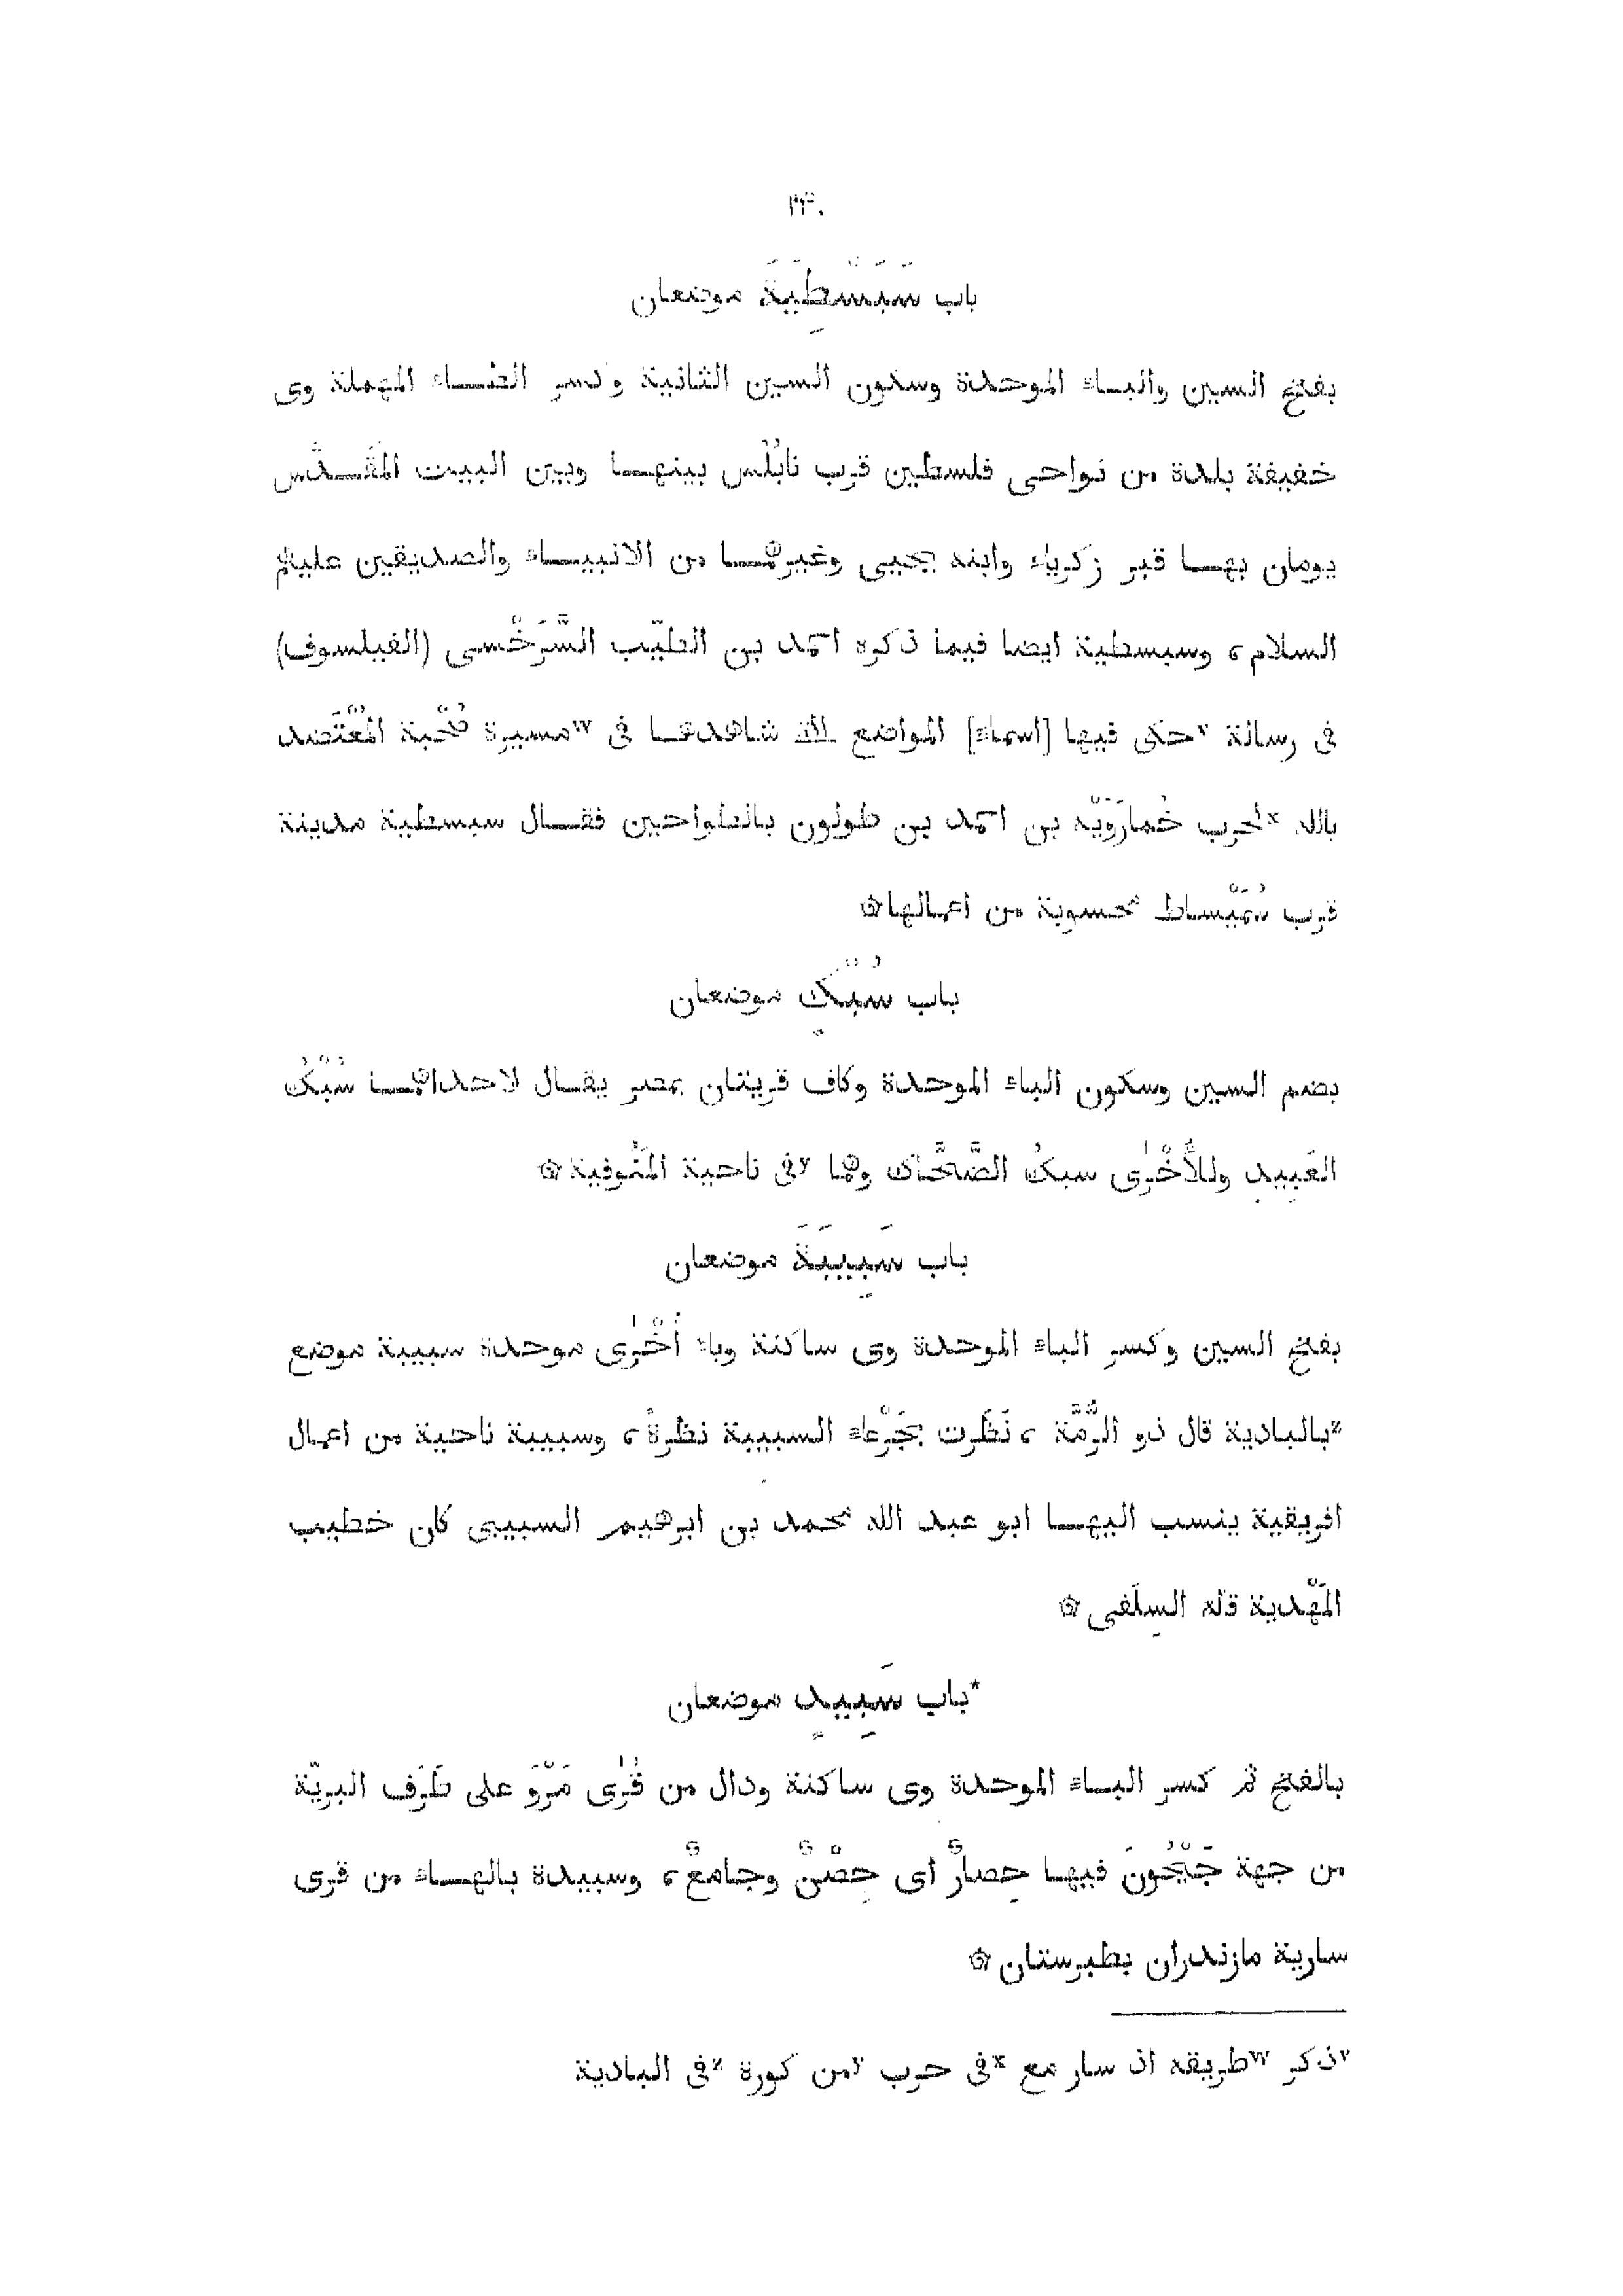 ٢٤٠
باب سَبَسْطِيَةَ موضعان
بفتح السين والبـاء الموحدة وسكون السين الثانية وكسر الطـاء المهملة وى
خفيفة بلدة من نواحى فلسطين قرب نابُلْس بينهـا وبين البيت المقـدّس
يومان بهـا قبر زكرياء وابنه يحيى وغيرهمـا من الانبيـاء والصديقين عليهم
السلام، وسبسطية ايضا فيما ذكره احمد بن الطيّب السَّرَخْسى (الفيلسوف)
فى رسالة ᵛحكى فيها [اسماء] المواضع التى شاهدهـا فى ʷمسيرة صُحْبة المُعْتَضد
بالله ˣلحرب خُمارَوَيْه بن احمد بن طولون بالطواحين فقـال سبسطية مدينة
قرب سُمَيْساط محسوبة من اعمالها۞
باب سُبْكٍ موضعان
بضم السين وسكون الباء الموحدة وكاف قريتان بمصر يقـال لاحداهمـا سُبْكُ
العَبِيدِ وللأُخْرٰى سبكُ الضَّحَّاك وهما ʸفى ناحية المَنُوفية۞
باب سَبِيبَةَ موضعان
بفتح السين وكسر الباء الموحدة وى ساكنة وباء أُخْرٰى موحدة سبيبة موضع
ᶻبالبادية قال ذو الرُّمَّة ، نَظَرت بجَرْعاء السبيبة نظرةً، وسبيبة ناحية من اعمال
افريقية ينسب اليهـا ابو عبد الله محمد بن ابرهيم السبيبى كان خطيب
المَهْدية قاله السِلَفى ۞
*باب سَبِيدٍ موضعان
بالفتح ثم كسر البـاء الموحدة وى ساكنة ودال من قُرٰى مَرْوَ على طَرَف البريّة
من جهة جَيْحُونَ فيهـا حِصارٌ أى حِصْنٌ وجامعٌ، وسبيدة بالهـاء من قرى
سارية مازندران بطبرستان ۞
ᵛذكر ʷطريقه اذ سار مع ˣفى حرب ʸمن كورة ᶻفى البادية